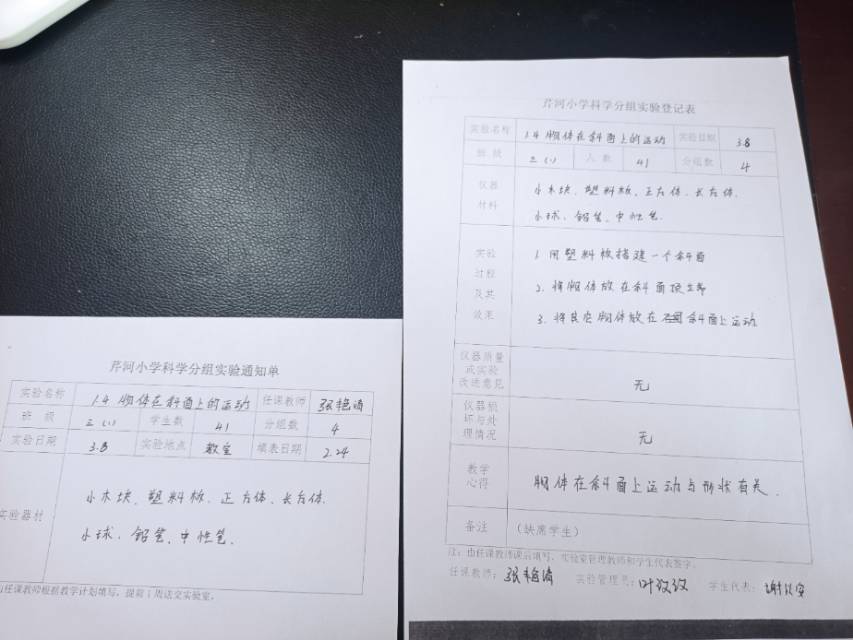 芹河小学科学分组实验通知单
实验名称 1.4 物体在斜面上的运动 任课教师 张艳清
班 级 三(1) 学生数 41 分组数 4
实验日期 3.8 实验地点 教室 填表日期 2.24
实验器材
小木块、塑料板、正方体、长方体、
小球、铅笔、中性笔。
由任课教师根据教学计划填写,提前1周送交实验室。
芹河小学科学分组实验登记表
实验名称 1.4 物体在斜面上的运动 实验日期 3.8
班 级 三(1) 人 数 41 分组数 4
仪器材料
小木块、塑料板、正方体、长方体、
小球、铅笔、中性笔。
实验过程及其效果
1. 用塑料板搭建一个斜面
2. 将物体放在斜面顶部
3. 将其它物体放在斜面上运动
仪器质量或实验改进意见 无
仪器损坏与处理情况 无
教学心得 物体在斜面上运动与形状有关。
备注 (缺席学生)
注:由任课教师课后填写,实验室管理教师和学生代表签字。
任课教师:张艳清 实验管理员:叶 学生代表:谢